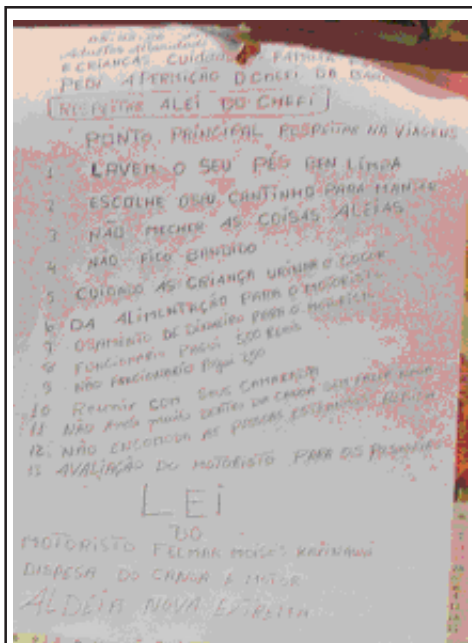 05.03.06
Adultos
E CRIANÇAS CUIDADO FAMILIA
PEDI APERMIÇÃO DCOEFI DA
RESPEITAR ALEI DO CHEFI
PONTO PRINCIPAL RESPEITAR NA VIAGENS
1 LAVEM O SEU PÉS BEN LIMPA
2 ESCOLHE OSEU CANTINHO PARA
3 NÃO MECHER AS COISAS ALEIAS
4 NÃO FICO BANDIDO
5 CUIDADO AS CRIANÇA URINA O COCOR
6 DA ALIMENTAÇÃO PARA O MOTORISTO
7 DE DINHEIRO PARA O
8 FUNCIONARIO PAGUI 500 REAIS
9 NÃO FUNCIONARIO PAGUI 250
10 Reunir COM SEUS CAMARADA
11 NÃO MUITO DENTRO DA CANOA SEM FAZER NADA
12 NÃO ENCOMODA AS PESSOAS
13 AVALIAÇÃO DO MOTORISTO PARA OS
LEI
DO
MOTORISTO FELMAR MOISES KAXINAWÁ
DISPESA DO CANOA E MOTOR
ALDEIA NOVA EXTREMA